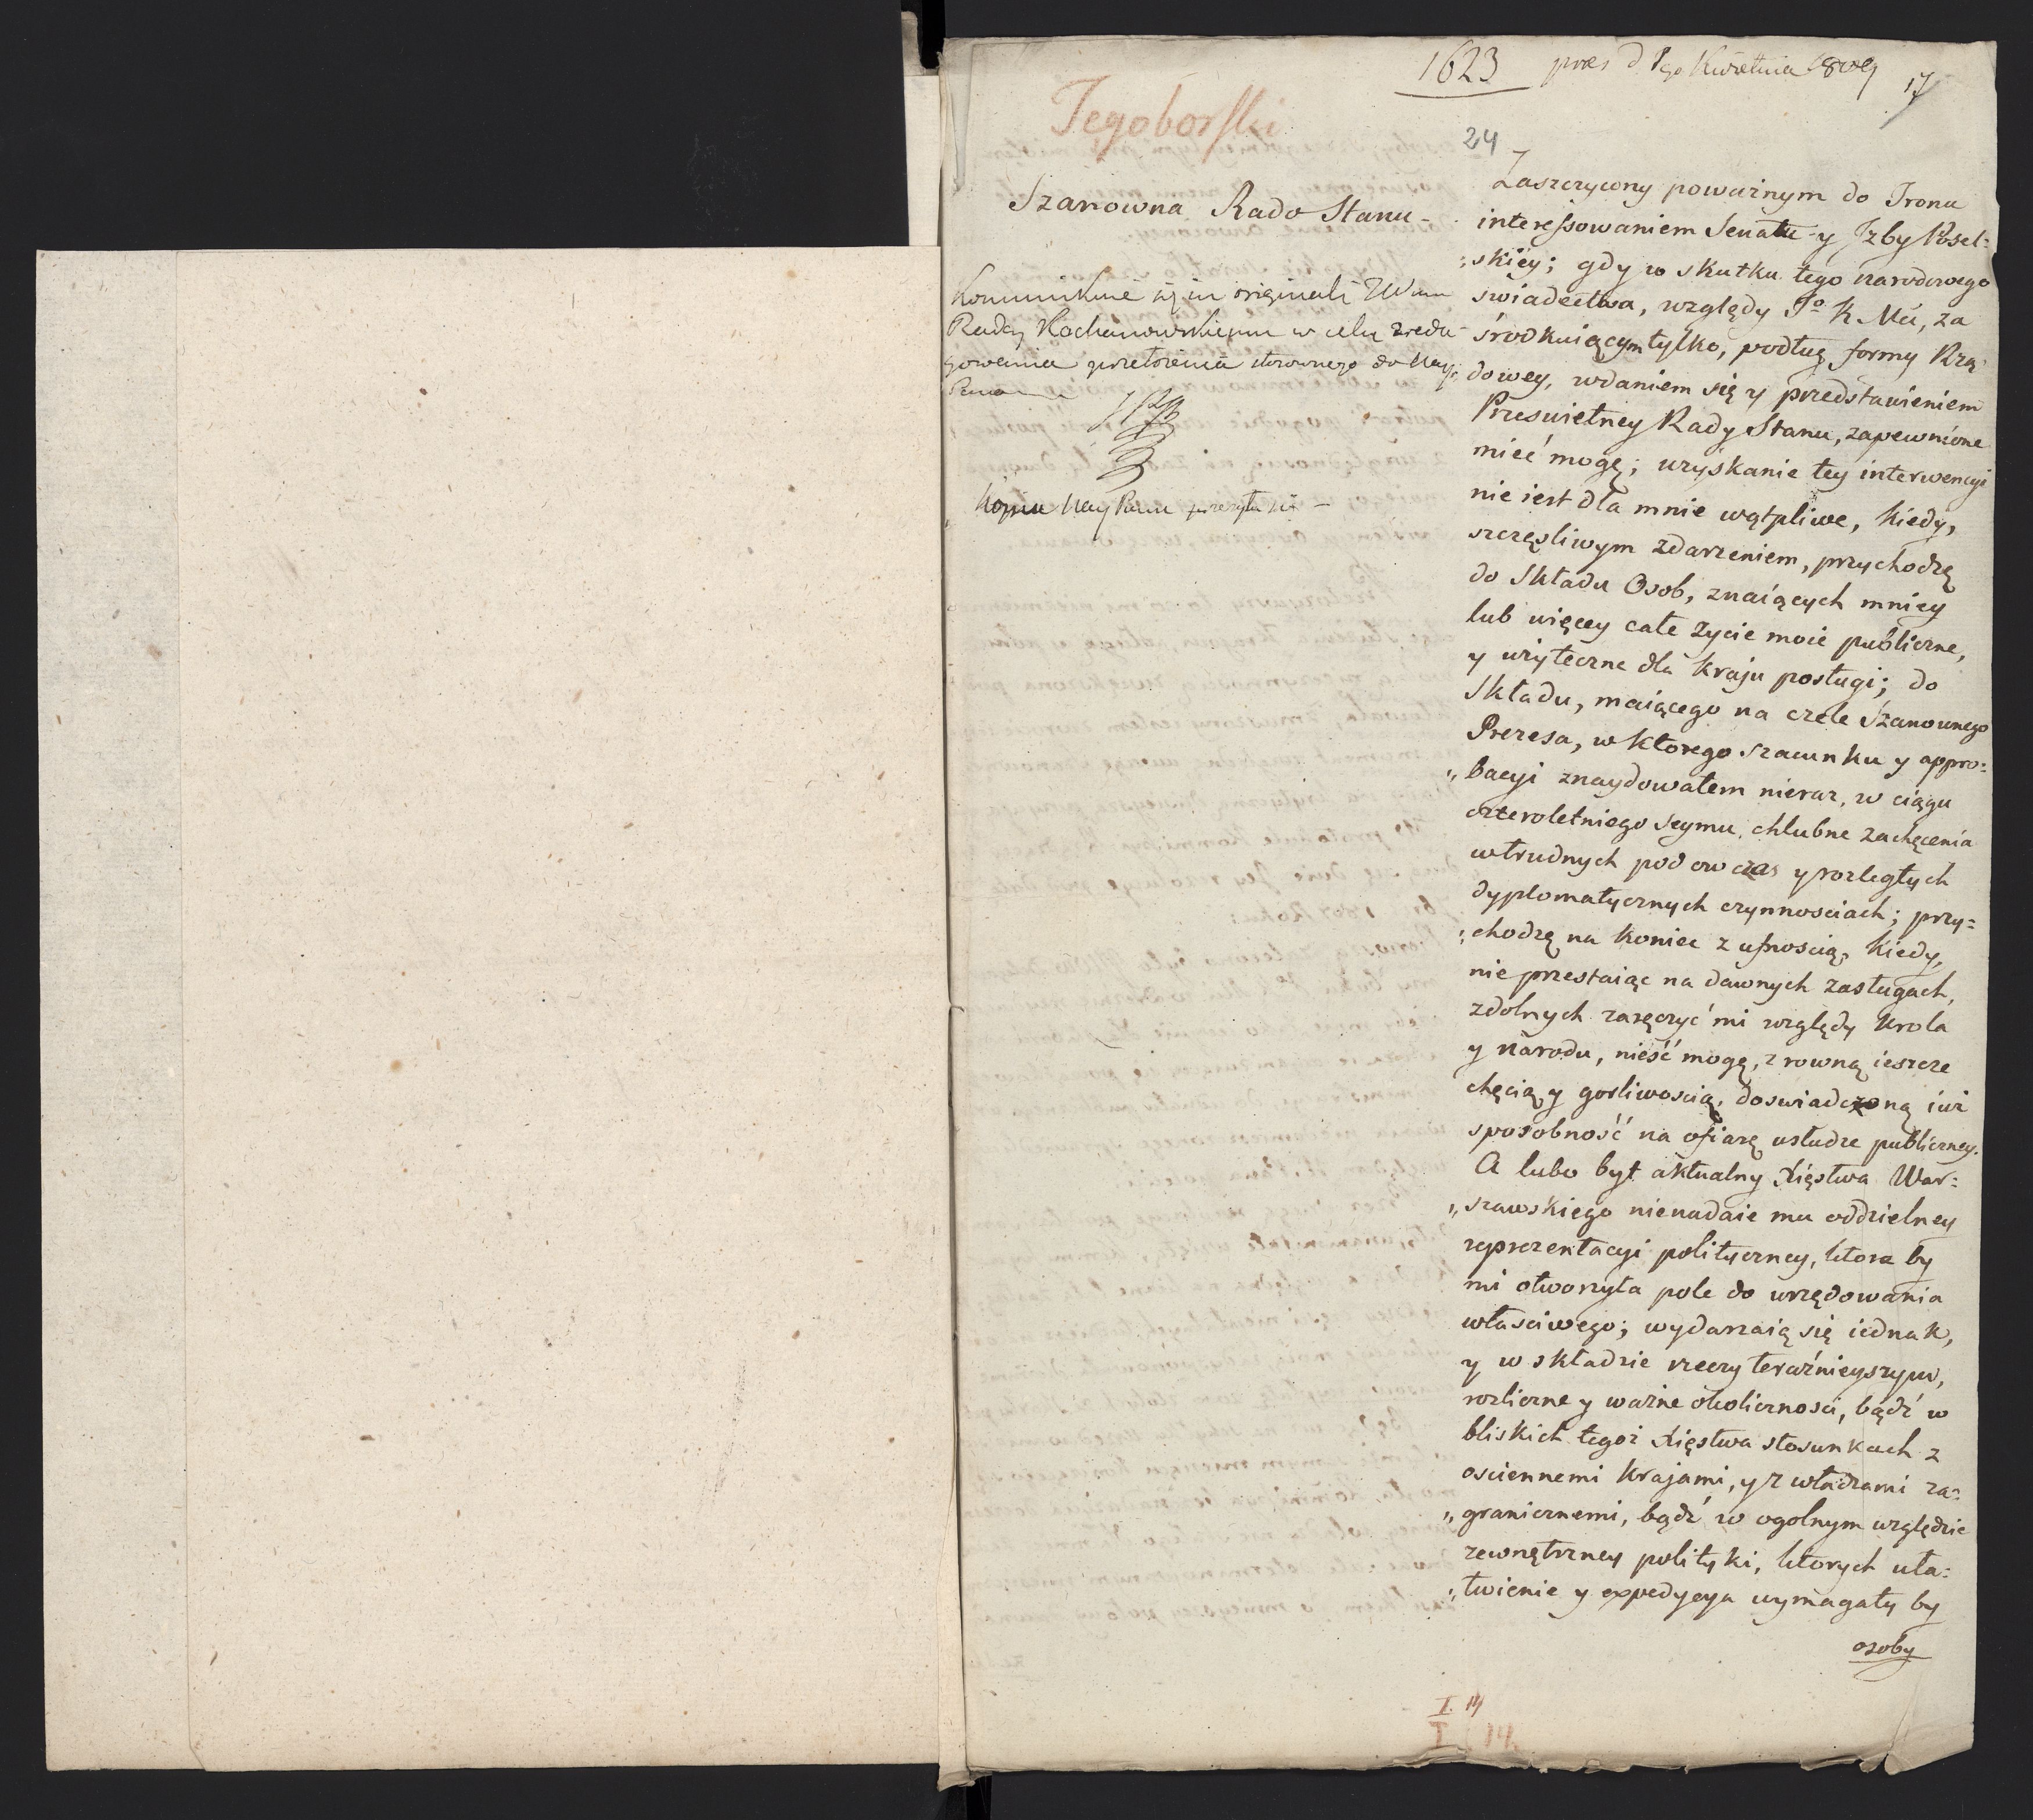 1623 pres d 1go Kwietnia 1809
17
Tęgoborski
24
Szanowna Rado Stanu -
Kommunikuie się in originali JW
Radcy Kochanowskiemu w celu zreda-
gowania przełożenia stosownego do Nay:
Pana
Kopia Nay Panu przesyła się -
Zaszczycony poważnym do Tronu
interessowaniem Senatu y Jzby Posel:
„skiéy; gdy w skutku tego narodowego
swiadectwa, względy Jo K Mci, za
środkuiącym tylko, podług formy Rzą
dowey, wdaniem się y przedstawieniem
Przeswietney Rady Stanu, zapewnione
mieć mogę; uzyskanie tey interwencyi
nie iest dla mnie wątpliwe, kiedy,
szczęsliwym zdarzeniem, przychodzę
do Składu Osob, znaiących mniey
lub więcey całe życie moie publiczne,
y użyteczne dla kraju posługi; do
Składu, maiącego na czele Szanownego
Prezesa, w ktorego szacunku y appro:
„bacyi znaydowałem nieraz, w ciągu
czteroletniego Seymu, chlubne zachęcenia
w trudnych pod ow czas y rozległych
dyplomatycznych czynnosciach; przy=
„chodzę na koniec z ufnoscią, kiedy,
nie przestaiąc na dawnych zasługach,
zdolnych zaręczyć mi względy Krola
y narodu, nieść mogę, z rowną ieszcze
chęcią y gorliwoscią, doswiadczoną iuż
sposobność na ofiarę usłudze publiczney.
A lubo byt aktualny Xięstwa War:
„szawskiego nienadaie mu oddzielney
reprezentacyi polityczney, ktora by
mi otworzyła pole do urzędowania
własciwego; wydarzaią się iednak,
y w składzie rzeczy teraźnieyszym,
rozliczne y ważne okolicznosci, bądź w
bliskich tegoż Xięstwa stosunkach z
osciennemi krajami, y z władzami za:
„granicznemi, bądź w ogolnym względzie
zewnętrzney polityki, ktorych uła:
„twienie y expedycya wymagały by
osoby
I. 14
I 14.